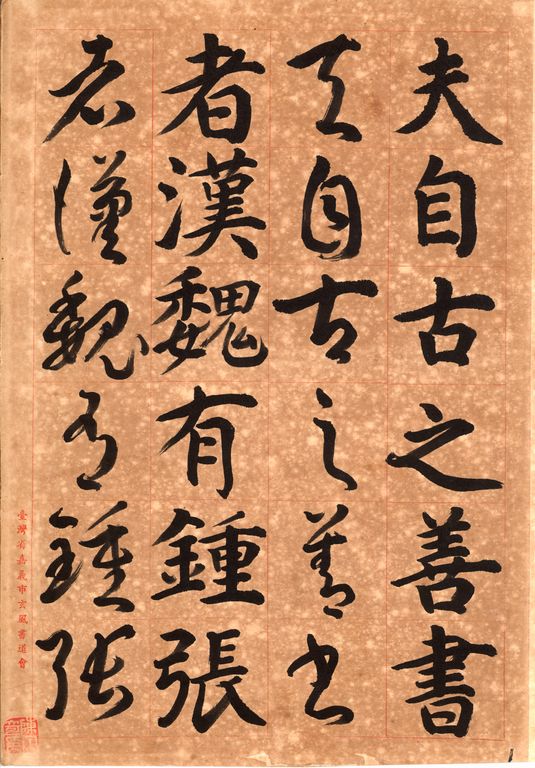 夫自古之善書
夫自古之善書
者漢魏有鍾張
者漢魏有鍾張
臺灣省嘉義市玄風書道會